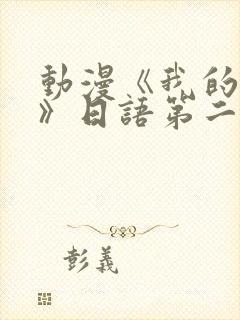 動漫《我的
》日語第二
彭義